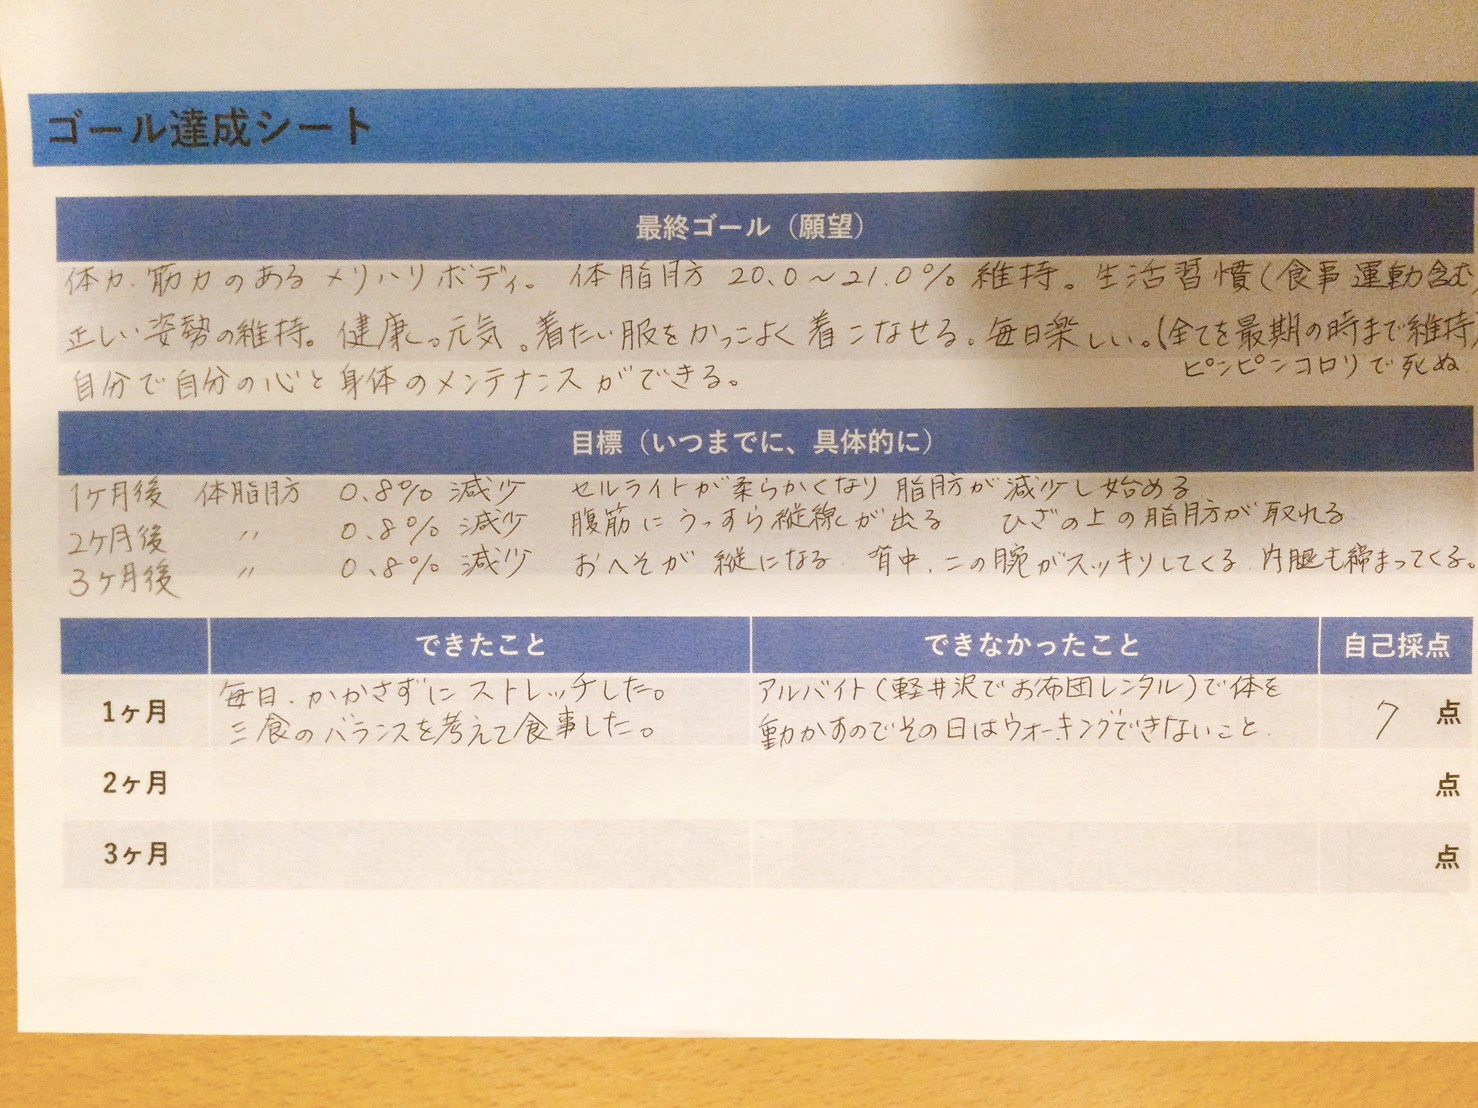 ゴール達成シート
最終ゴール（願望）
体力、筋力のあるメリハリボディ。 体脂肪 20.0～21.0% 維持。生活習慣（食事 運動含む）
正しい姿勢の維持。健康。元気。着たい服をかっこよく着こなせる。毎日楽しい。（全てを最期の時まで維持）
ピンピンコロリで死ぬ
自分で自分の心と身体のメンテナンスができる。
目標（いつまでに、具体的に）
1ヶ月後 体脂肪 0.8% 減少 セルライトが柔らかくなり 脂肪が減少し始める
2ヶ月後 〃 0.8% 減少 腹筋にうっすら縦線が出る ひざの上の脂肪が取れる
3ヶ月後 〃 0.8% 減少 おへそが縦になる 背中、二の腕がスッキリしてくる 内腿も締まってくる。
できたこと できなかったこと 自己採点
1ヶ月 毎日、かかさずにストレッチした。 アルバイト（軽井沢でお布団レンタル）で体を
三食のバランスを考えて食事した。 動かすのでその日はウォーキングできないこと 7 点
2ヶ月 点
3ヶ月 点